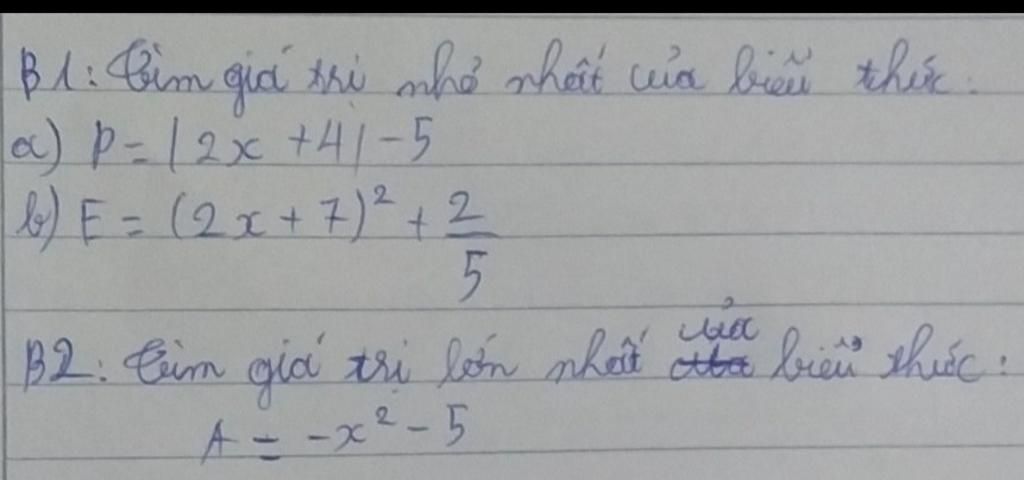 B1: Tìm giá trị nhỏ nhất của biểu thức:
a) P = |2x + 4| - 5
b) E = (2x + 7)² + 2/5
B2: Tìm giá trị lớn nhất của biểu thức:
A = -x² - 5